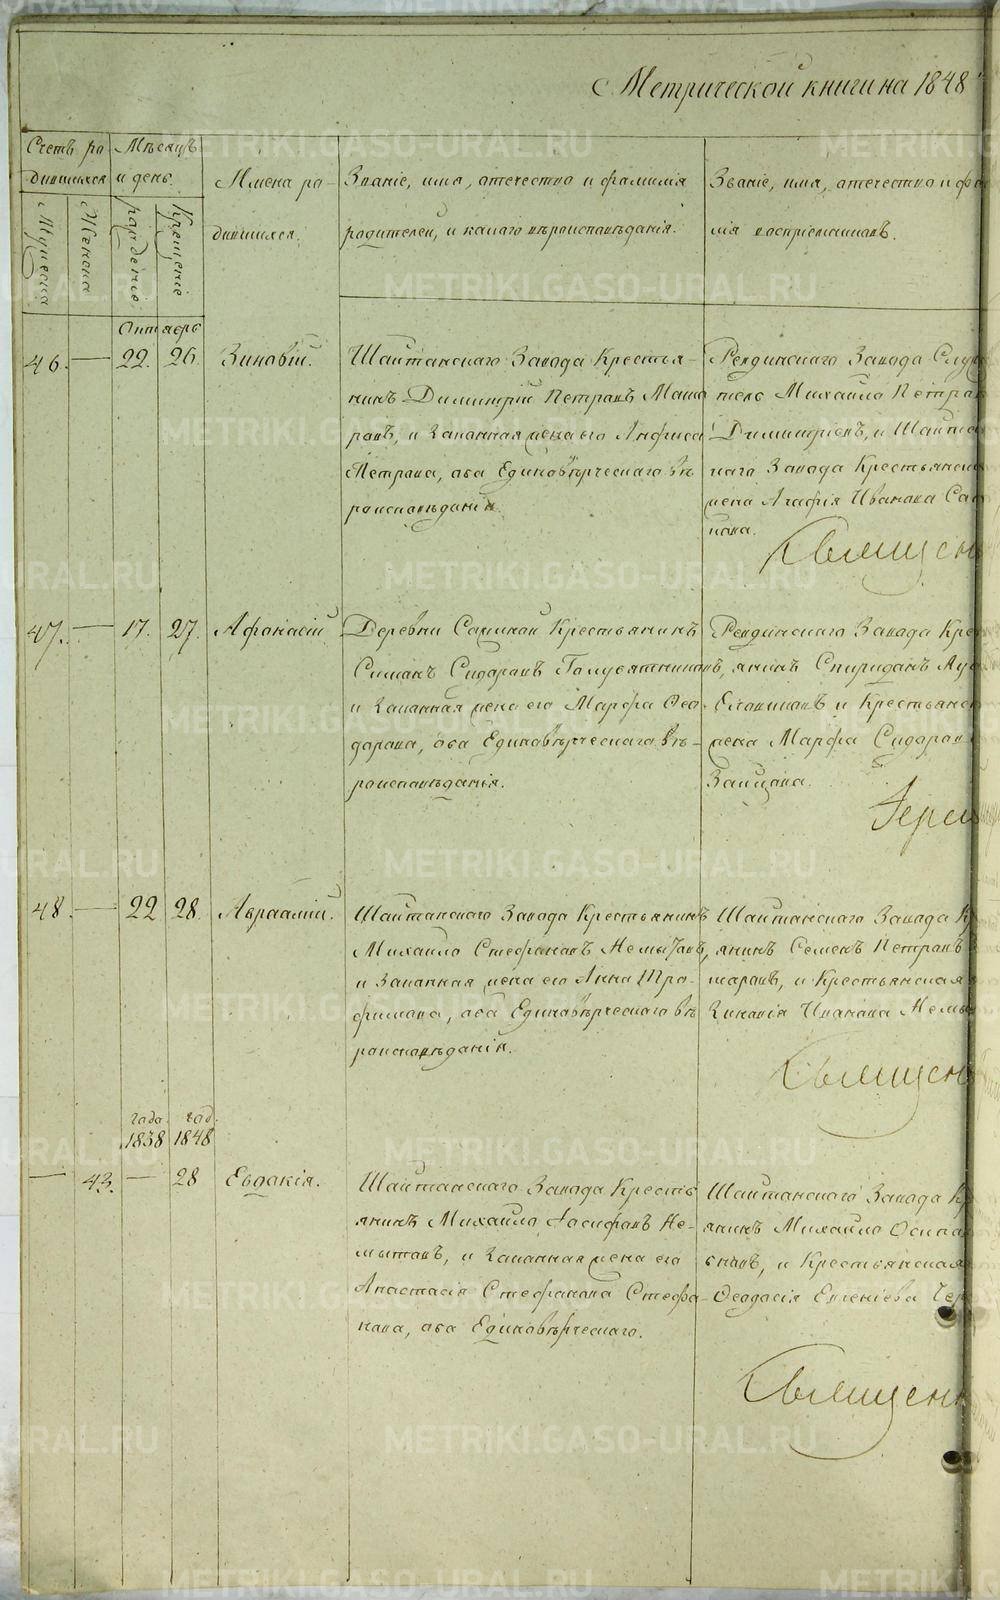 Метрической книги на 1848
Счетъ ро-
дившихся
Мужеска
Женска
Мѣсяцъ
и день.
рожденіе
Крещеніе
Имена ро-
дившихся.
Званіе, имя, отечество и фамилія
родителей, и какого вѣроисповѣданія.
Званіе, имя, отечество и фа
лія воспріемниковъ.
Октябрь
46. — 22. 26. Зиновій.
Шайтанскаго Завода Крестья-
нинъ Димитрій Петровъ Мака
ровъ, и Законная жена его Анфиса
Петрова, оба Единовѣрческаго вѣ
роисповѣданія.
Ревдинскаго Завода Служ
тель Михайло Петров
Димитріевъ, и Шайтан
скаго Завода Крестьянск
жена Агафія Иванова
нова.
Священ
47. — 17. 27. Афонасій
Деревни Сажиной Крестьянинъ
Симонъ Сидоровъ Голубятниковъ,
и Законная жена его Марфа Фео-
дорова, оба Единовѣрческаго вѣ-
роисповѣданія.
Ревдинскаго Завода Кре
янинъ Спиридонъ
и Крестьянс
жена Марфа Сидоров
Зайцова.
Іерей
48. — 22 28. Авраамій.
Шайтанскаго Завода Крестьянинъ
Михайло Стефановъ Немытовъ,
и Законная жена его Анна Тро-
фимова, оба Единовѣрческаго вѣ
роисповѣданія.
Шайтанскаго Завода Кр
янинъ Семенъ Петровъ
таровъ, и Крестьянская
Зиновія Иванова Немы
Священ
года 1838
год. 1848
— 43. — 28 Евдокія.
Шайтанскаго Завода Кресть
янинъ Михайло Іосифовъ Не-
мытовъ, и Законная жена его
Анастасія Стефанова Стефа-
нова, оба Единовѣрческаго.
Шайтанскаго Завода Кр
янинъ Михайло Осипов
и Крестьянская
Феодосія Евгеніева Чер
Священ
METRIKI.GASO-URAL.RU